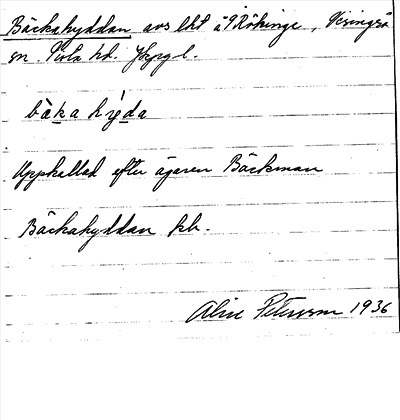 Bäckahyddan avs. lht å Rökinge, Visingsö
sn. Vista hd. Jkpg l.
bàka hỳda
Uppkallad efter ägaren Bäckman
Bäckahyddan kb.
Aline Petersson 1936